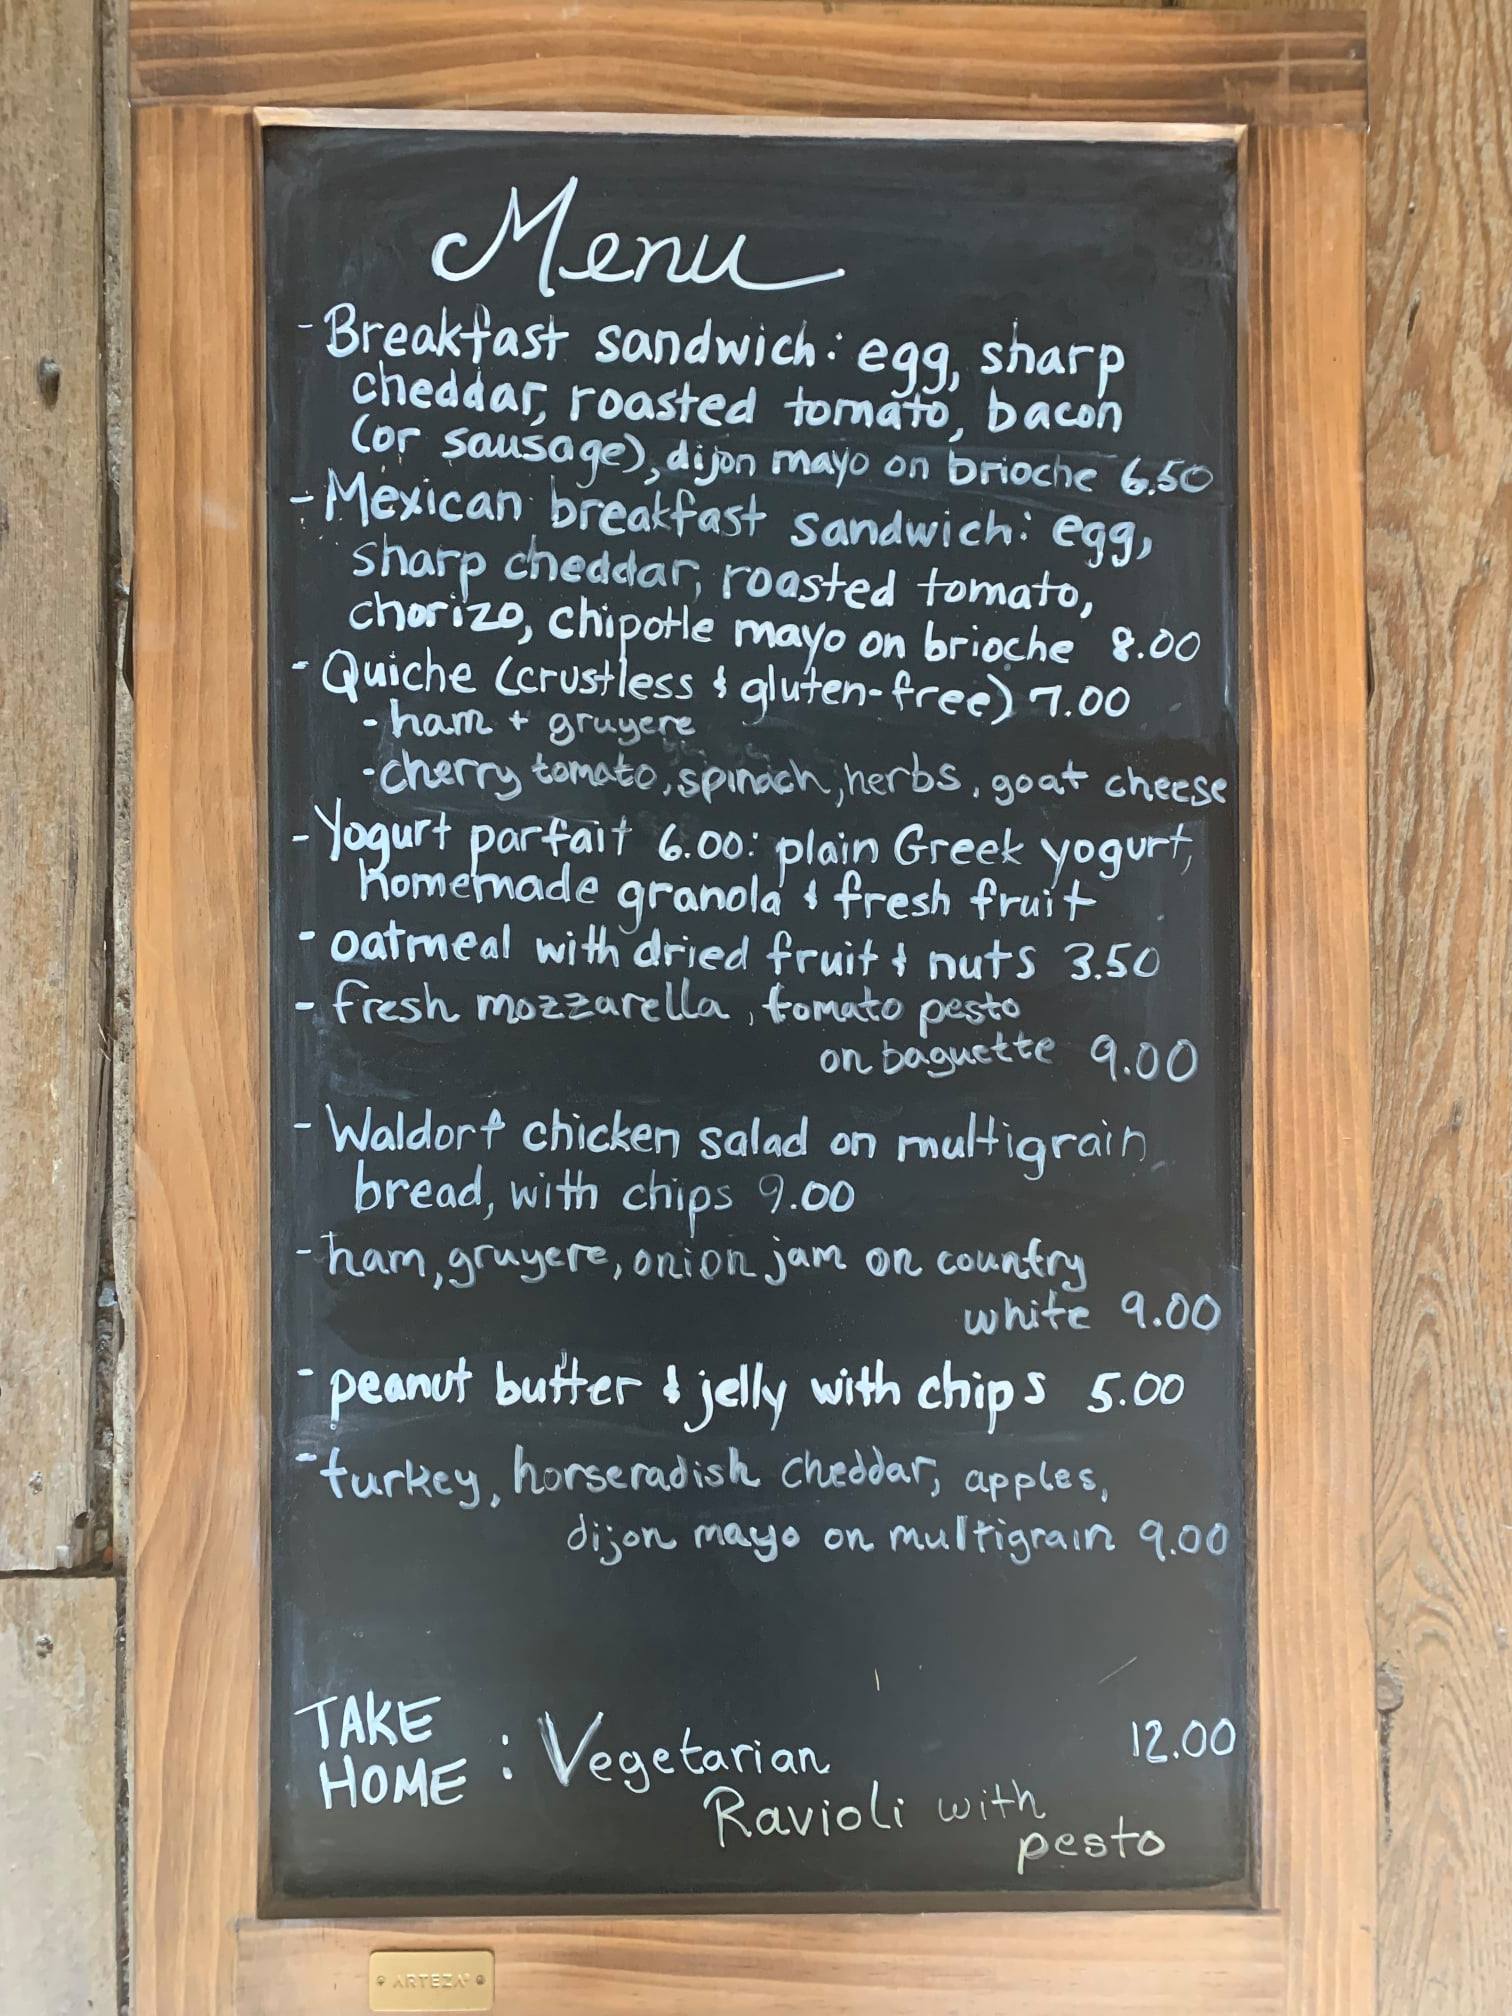 Menu
- Breakfast sandwich: egg, sharp
cheddar, roasted tomato, bacon
(or sausage), dijon mayo on brioche 6.50
- Mexican breakfast sandwich: egg,
sharp cheddar, roasted tomato,
chorizo, chipotle mayo on brioche 8.00
- Quiche (crustless & gluten-free) 7.00
- ham + gruyere
- cherry tomato, spinach, herbs, goat cheese
- Yogurt parfait 6.00: plain Greek yogurt,
homemade granola & fresh fruit
- oatmeal with dried fruit & nuts 3.50
- fresh mozzarella, tomato pesto
on baguette 9.00
- Waldorf chicken salad on multigrain
bread, with chips 9.00
- ham, gruyere, onion jam on country
white 9.00
- peanut butter & jelly with chips 5.00
- turkey, horseradish cheddar, apples,
dijon mayo on multigrain 9.00
TAKE
HOME : Vegetarian 12.00
Ravioli with
pesto
ARTEZA